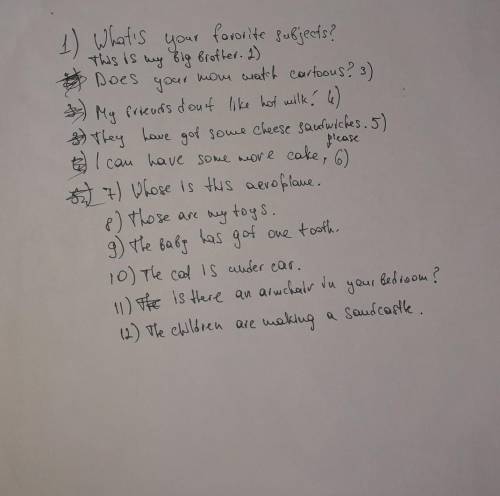 1) What's your favorite subjects?
This is my big brother. 2)
Does your mom watch cartoons? 3)
My friends dont like hot milk! 4)
They have got some cheese sandwiches. 5)
please
I can have some more cake, 6)
7) Whose is this aeroplane.
8) Those are my toys.
9) The baby has got one tooth.
10) The cat is under car.
11) Is there an armchair in your bedroom?
12) The children are making a sandcastle.